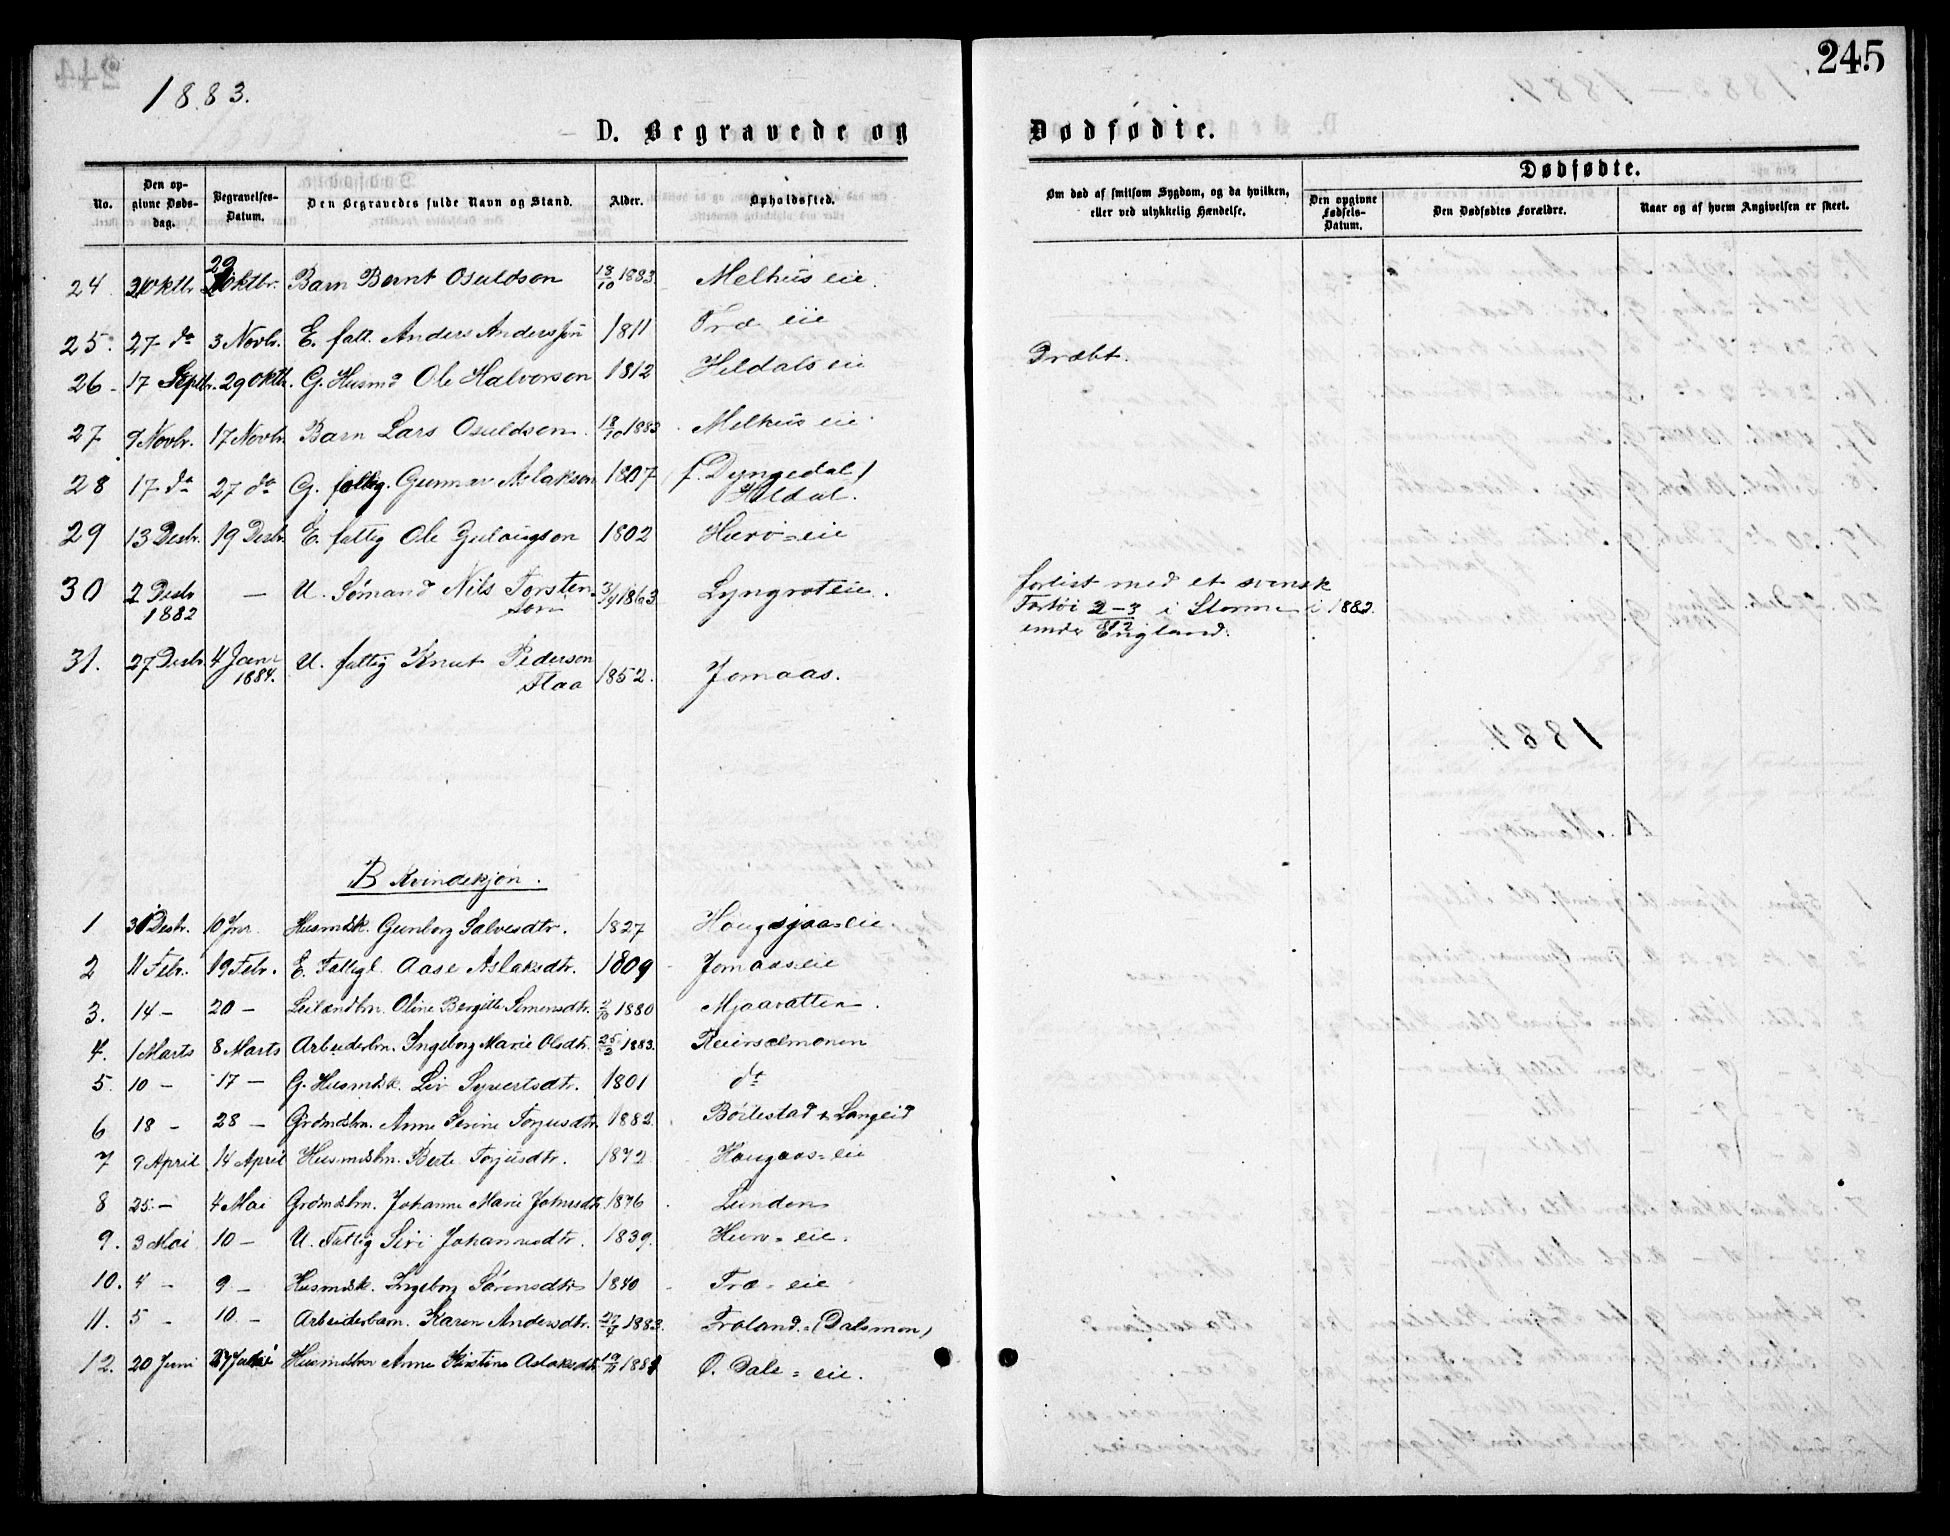 245
1883.
D. Begravede og Dødfødte.
No.
Den opgivne Dødsdag.
Begravelses-Datum.
Den Begravedes fulde Navn og Stand.
Alder.
Opholdssted.
Om død af smitsom Sygdom, og da hvilken, eller ved ulykkelig Hændelse.
Dødfødte.
Den opgivne Fødsels-Datum.
Den Dødfødtes Forældre.
Naar og af hvem Angivelsen er skeet.
24 Oktbr. 29 Oktbr. Barn Bernt Osuldson 18/10 1883 Melhus eie.
25. 27 do 3 Novbr. E. fatt. Anders Andersson 1811 Træ eie
26 - 17 Septbr. 29 Oktbr. G. Husmd Ole Halvorson 1812 Heldals eie Dræbt.
27 9 Novbr. 17 Novbr. Barn Lars Osuldson 18/10 1883 Melhus eie
28 17 do 27 do G. fattig. Gunnar Aslakson 1807 (f. Dyngedal)
Heldal.
29 13 Desbr. 19 Desbr. E. fattig Ole Gulaugson 1802 Hurv=eie
30 2 Desbr 1882 — U. Sømand Nils Torstenson 3/9 1863 Lyngrot eie.
forlist med et svensk
Fartøi 2-3/12 i Storme i 1882.
under England.
31. 27 Desbr 4 Janr 1884. U. fattig Knut Pederson Flaa 1852. Jomaas.
B Kvindekjøn.
1 31 Desbr. 10 Jnr. Husmdsk. Gunborg Salvesdtr. 1827 Hougsjaa=eie
2 11 Febr. 19 Febr. E. Fattigl. Aase Aslaksdtr. 1809 Jomaas=eie
3. 14 — 20 — Leilændbn. Oline Bergitte Simonsdtr. 2/10 1880 Mjaavatten.
4. 1 Marts 8 Marts Arbeiderbn. Ingeborg Marie Olsdtr. 25/2 1883. Reierselmonen
5. 10 — 17 — G. Husmdsk. Liv Syvertsdtr. 1801 do
6 18 — 28 — Grdmdsbn. Anne Serine Torjusdtr. 1882. Bøilestad & Langeid
7 9 April 14 April Husmdsbn. Berte Torjusdtr. 1872 Haugaas=eie
8 25 — 4 Mai Grdmdsbn. Johanne Marie Johnsdtr. 1876 Lunden
9. 3 Mai 10 — U. Fattig Siri Johannesdtr. 1839. Hurv=eie.
10. 4 — 9 — Husmdsk. Ingeborg Sørensdtr 1840 Træ=eie
11. 5 — 10 — Arbeiderbarn. Karen Andersdtr. 27/4 1883. Froland. (Dalsmon)
12. 20 Juni 27 Juni Husmdsbrn Anne Kirstine Aslaksdtr 1881 Ø. Dale=eie.